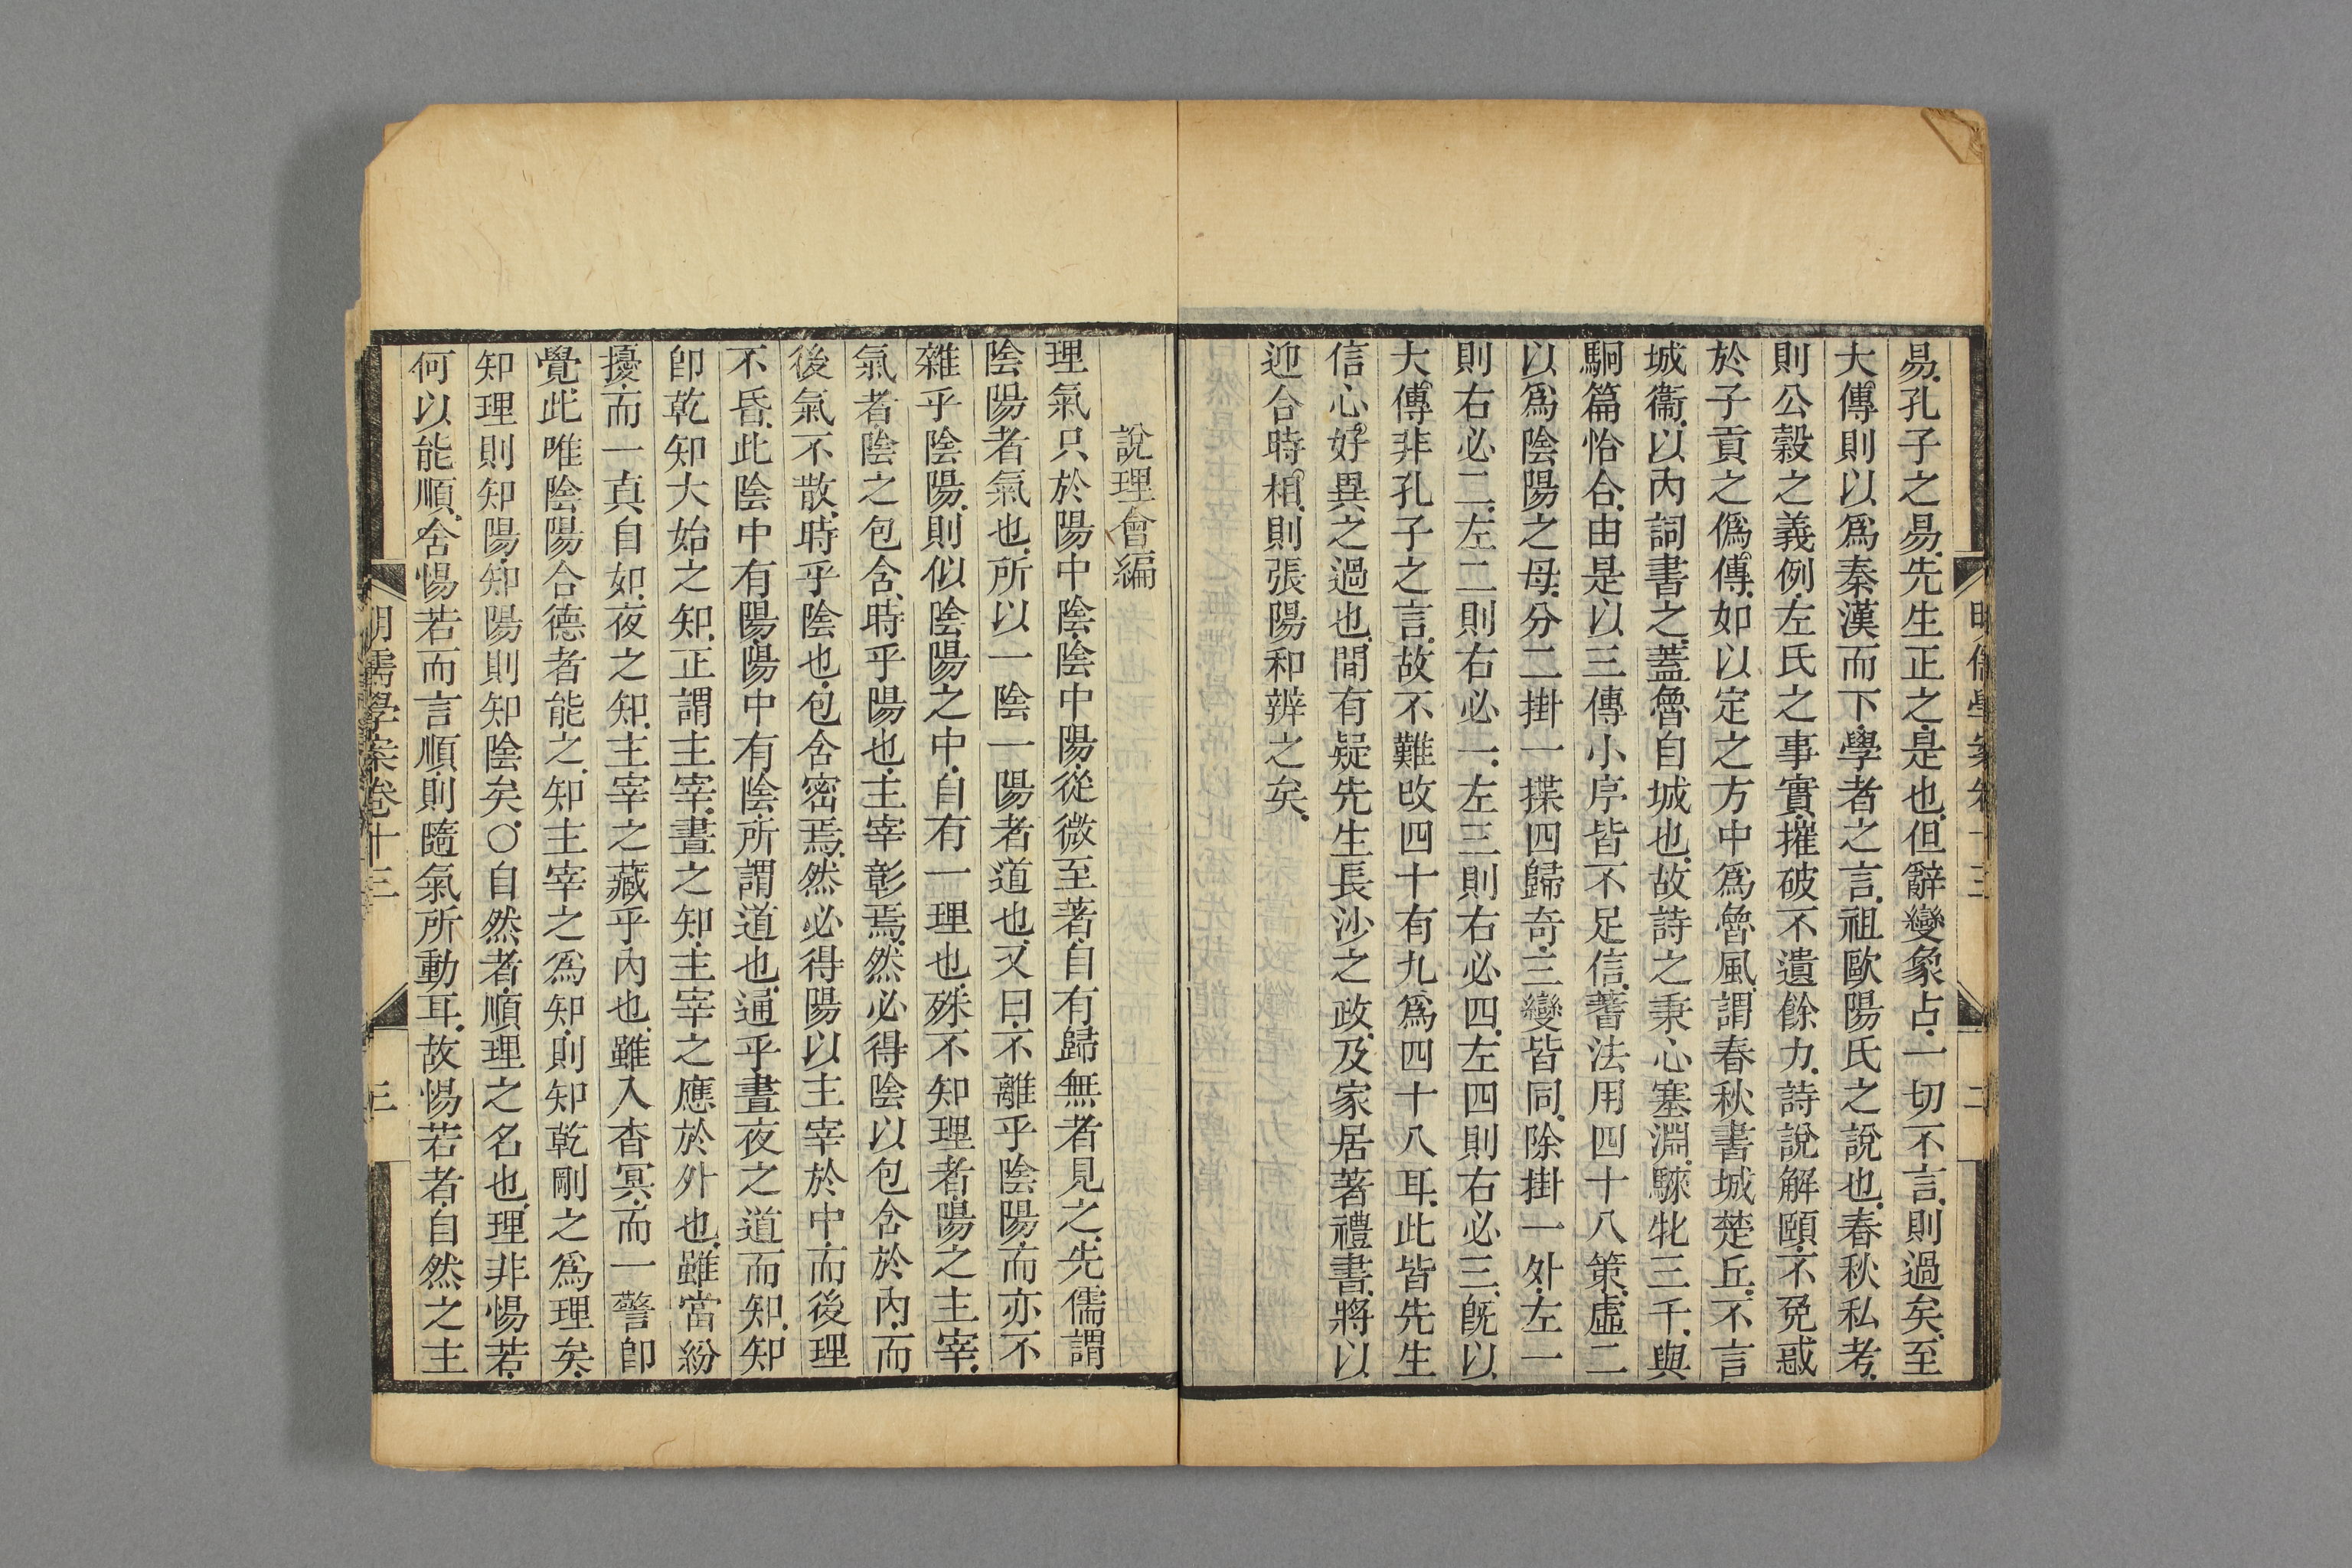 易孔子之易先生正之是也但辭變象占一切不言則過矣至
大傳則以爲秦漢而下學者之言祖歐陽氏之說也春秋私考
則公穀之義例左氏之事實摧破不遺餘力詩說解頤不免惑
於子貢之僞傳如以定之方中爲魯風謂春秋書城楚丘不言
城衞以內詞書之蓋魯自城也故詩之秉心塞淵騋牝三千與
駉篇恰合由是以三傳小序皆不足信蓍法用四十八策虛二
以爲陰陽之母分二掛一揲四歸奇三變皆同除掛一外左一
則右必二左二則右必一左三則右必四左四則右必三旣以
大傳非孔子之言故不難改四十有九爲四十八耳此皆先生
信心好異之過也間有疑先生長沙之政及家居著禮書將以
迎合時相則張陽和辨之矣
明儒學案卷十三
二
說理會編
理氣只於陽中陰陰中陽從微至著自有歸無者見之先儒謂
陰陽者氣也所以一陰一陽者道也又曰不離乎陰陽而亦不
雜乎陰陽則似陰陽之中自有一理也殊不知理者陽之主宰
氣者陰之包含時乎陽也主宰彰焉然必得陰以包含於內而
後氣不散時乎陰也包含密焉然必得陽以主宰於中而後理
不昏此陰中有陽陽中有陰所謂道也通乎晝夜之道而知知
卽乾知大始之知正謂主宰晝之知主宰之應於外也雖當紛
擾而一真自如夜之知主宰之藏乎內也雖入杳冥而一警卽
覺此唯陰陽合德者能之知主宰之爲知則知乾剛之爲理矣
知理則知陽知陽則知陰矣○自然者順理之名也理非惕若
何以能順舍惕若而言順則隨氣所動耳故惕若者自然之主
明儒學案卷十三
三